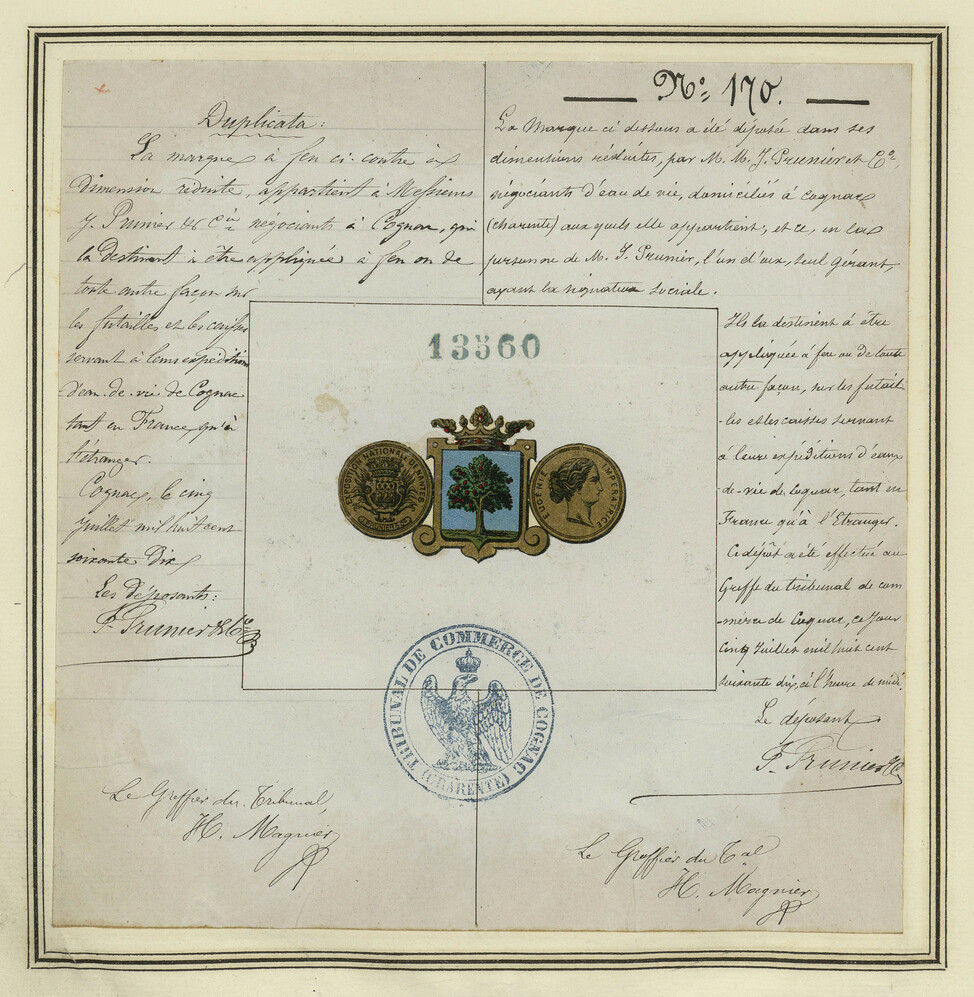 Duplicata:
La marque à feu ci-contre à
Dimension réduite, appartient à Messieurs
J. Prunier & Cie négociants à Cognac, qui
la destinent à être appliquée à feu ou de
toute autre façon sur
les futailles et les caisses
servant à leurs expéditions
d'eau-de-vie de Cognac
tant en France, qu'à
l'étranger.
Cognac, le cinq
juillet mil huit cent
soixante Dix
Les déposants:
J. Prunier & Co
Le Greffier du Tribunal,
H. Magnier
No 170.
La Marque ci dessous a été déposée dans ses
dimentions réduites, par M. M. J. Prunier et Cie,
négociants d'eau de vie, domiciliés à Cognac
(charente) aux quels elle appartient, et ce, en la
personne de M. J. Prunier, l'un d'eux, seul gérant,
ayant la signature sociale.
Ils la destinent à être
appliquée à feu ou de toute
autre façon, sur les futail
-les et les caisses servant
à leurs expéditions d'eaux
-de-vie de Cognac, tant en
France qu'à l'Etranger.
Ce dépôt a été effectué au
Greffe du tribunal de com
-merce de Cognac, ce jour
cinq Juillet mil huit cent
soixante dix, à l'heure de midi.
Le déposant
J. Prunier & Co
Le Greffier du Tal
H. Magnier
13560
EXPOSITION NATIONALE DE NANTES
EUGÉNIE IMPÉRATRICE
TRIBUNAL DE COMMERCE DE COGNAC
(CHARENTE)